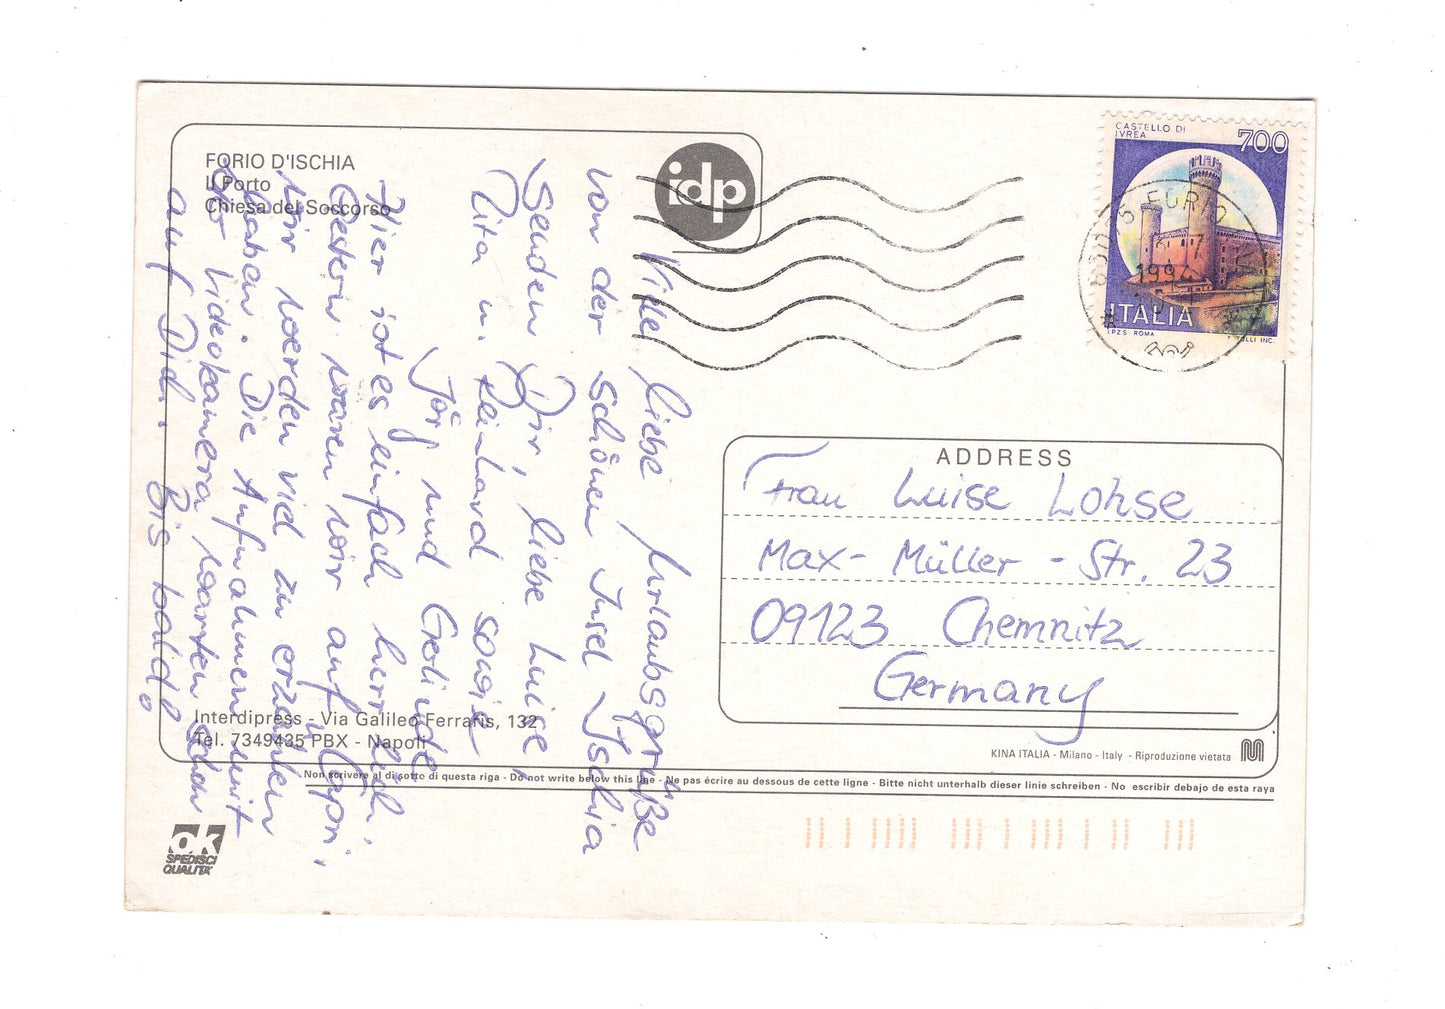 FORIO D'ISCHIA
Il Porto
Chiesa del Soccorso
idp
Viele liebe Urlaubsgrüße
von der schönen Insel Ischia
senden Dir, liebe Luise,
Rita u. Reinhard sowie
Jörg und Gerlinde
Hier ist es einfach herrlich.
Gestern waren wir auf Capri.
Wir werden viel zu erzählen
haben. Die Aufnahmen mit
der Videokamera warten schon
auf Dich. Bis bald!
CASTELLO DI
IVREA
700
ITALIA
I.P.Z.S. ROMA
80075 FORIO
1994
ADDRESS
Frau Luise Lohse
Max-Müller-Str. 23
09123 Chemnitz
Germany
Interdipress - Via Galileo Ferraris, 132
Tel. 7349435 PBX - Napoli
KINA ITALIA - Milano - Italy - Riproduzione vietata
Non scrivere al di sotto di questa riga - Do not write below this line - Ne pas écrire au dessous de cette ligne - Bitte nicht unterhalb dieser linie schreiben - No escribir debajo de esta raya
ok
SPEDISCI
QUALITA'